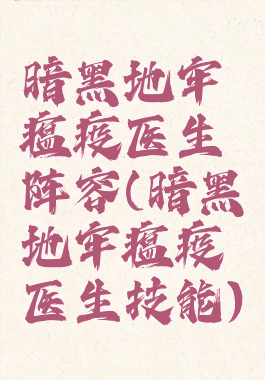 暗黑地牢
瘟疫医生
阵容(暗黑
地牢瘟疫
医生技能)